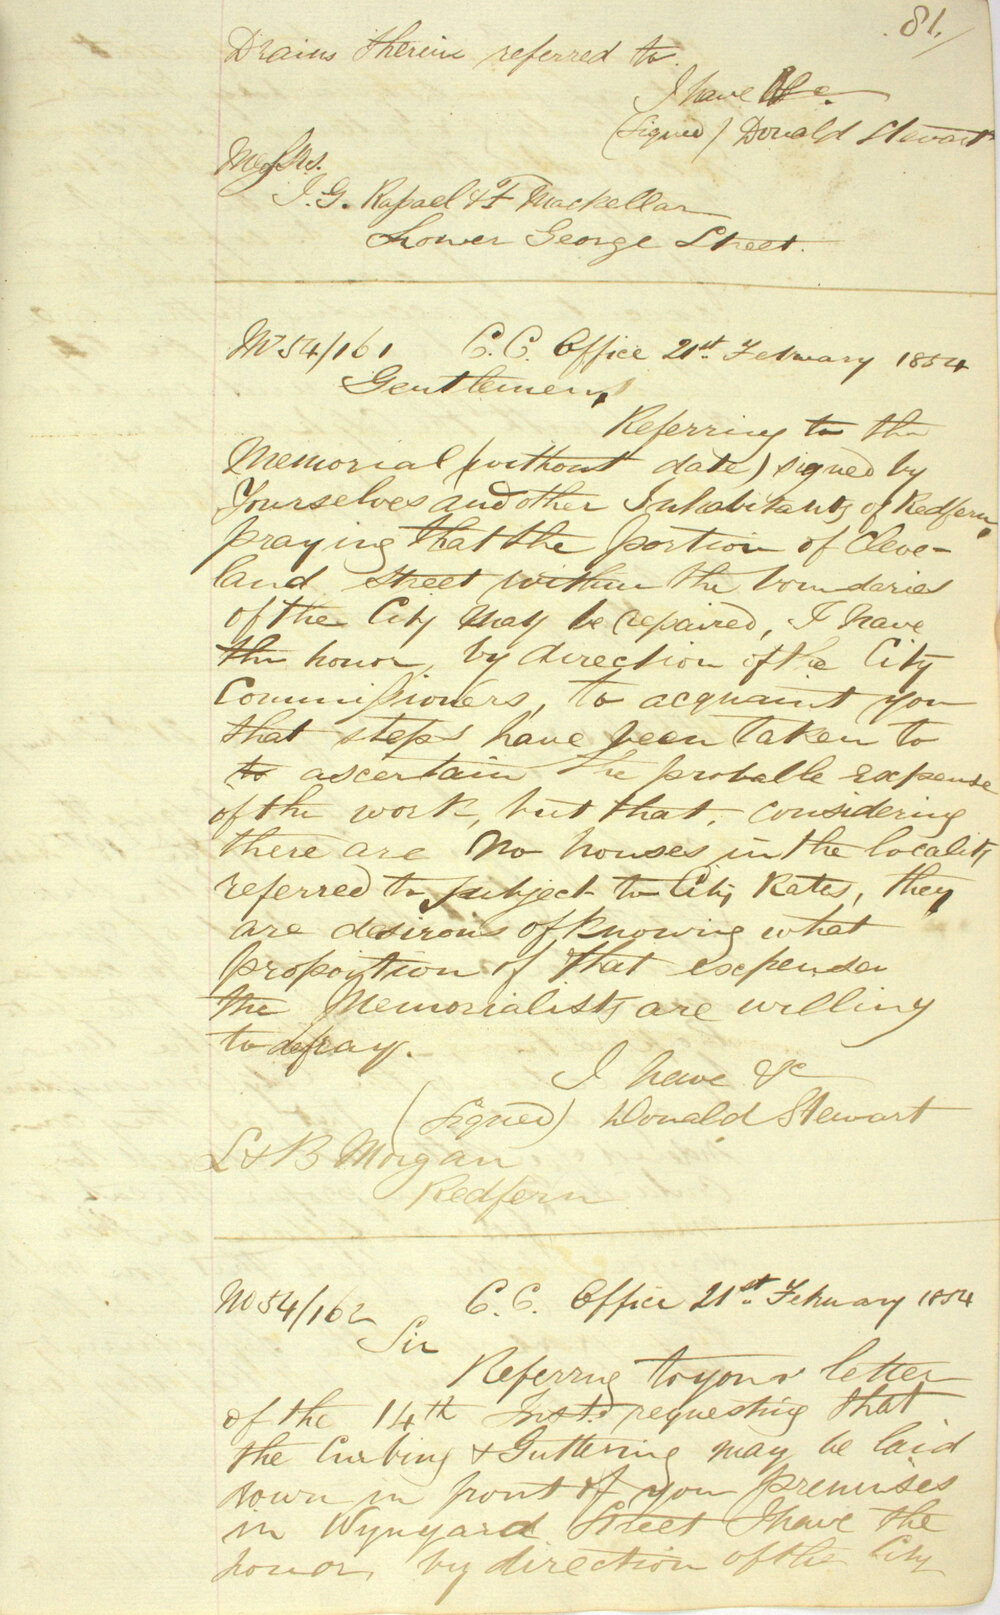 81.
Drains therein referred to.
I have &c.
(Signed) Donald Stewart
Messrs.
J. G. Rapael & F Mackellar
Lower George Street.
No 54/161 C. C. Office 21st. February 1854
Gentlemen,
Referring to the
Memorial (without date) signed by
Yourselves and other Inhabitants of Redfern,
praying that the portion of Cleve-
land street within the boundaries
of the City may be repaired, I have
the honor, by direction of the City
Commissioners, to acquaint you
that steps have been taken to
to ascertain the probable expense
of the work, but that, considering
there are no houses in the locality
referred to subject to City Rates, they
are desirous of knowing what
proportion of that expense
the Memorialists are willing
to defray.
I have &c
(Signed) Donald Stewart
S & B Morgan
Redfern
No 54/162 C. C. Office 21st. February 1854
Sir
Referring to your letter
of the 14th Inst. requesting that
the Curbing & Guttering may be laid
down in front of your premises
in Wynyard Street I have the
honor, by direction of the City